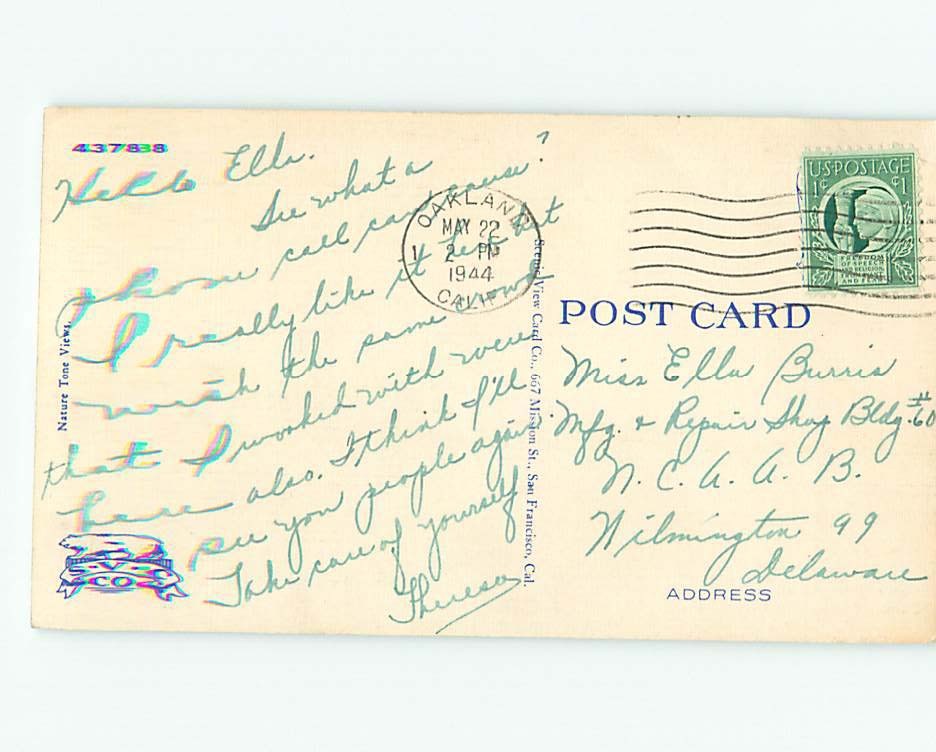 437838
Hello Ella.
See what a
phone call can cause?
I really like it here but
wish the same
that I worked with were
here also. I think I'll
see you people again.
Take care of yourself
Theresa
Nature Tone Views.
S.V.C
CO
OAKLAND
MAY 22
1 2 PM
1944
CALIF.
Scenic View Card Co., 667 Mission St., San Francisco, Cal.
U.S. POSTAGE
1¢ ¢1
FREEDOM
OF SPEECH
AND RELIGION
AND FEAR
POST CARD
Miss Ella Burris
Mfg. & Repair Shop Bldg. #60
N. C. A. A. B.
Wilmington 99
Delaware
ADDRESS